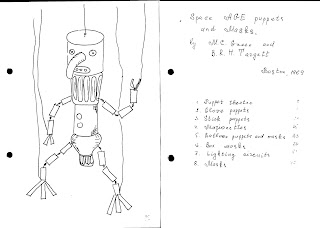 Space AGE puppets
and Masks.
By M.C. Green and
B.R.H. Targett
Boston, 1969
1. Puppet theatre
2. Glove puppets
3. Stick puppets
4. Marionettes
5. Balloon puppets and masks
6. Box masks
7. Lighting circuits
8. Masks